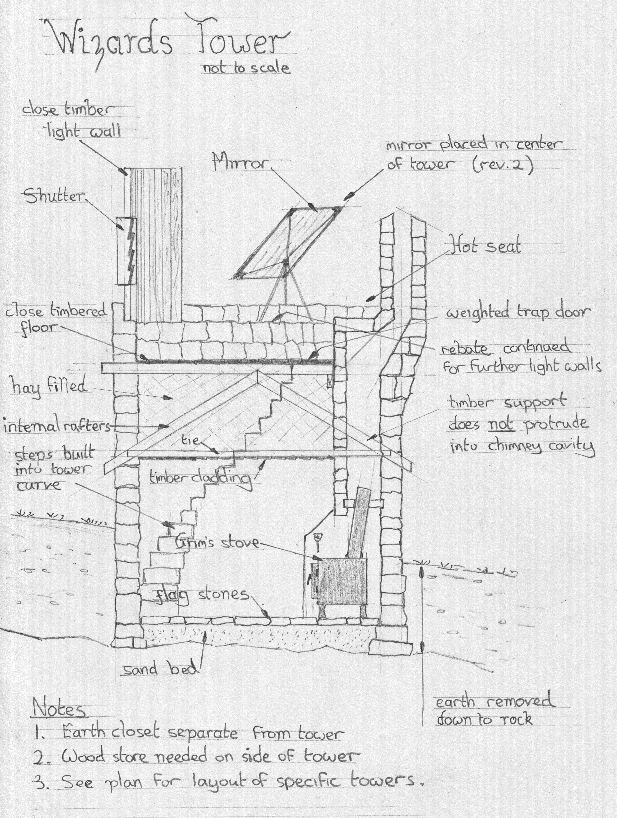 Wizards Tower
not to scale
close timber
light wall
Mirror
mirror placed in center
of tower (rev.2)
Shutter
Hot seat
close timbered
floor
weighted trap door
rebate continued
for further light walls
hay filled
internal rafters
timber support
does not protrude
into chimney cavity
tie
steps built
into tower
curve
timber cladding
Grim's stove
flag stones
sand bed
earth removed
down to rock
Notes
1. Earth closet separate from tower
2. Wood store needed on side of tower
3. See plan for layout of specific towers.